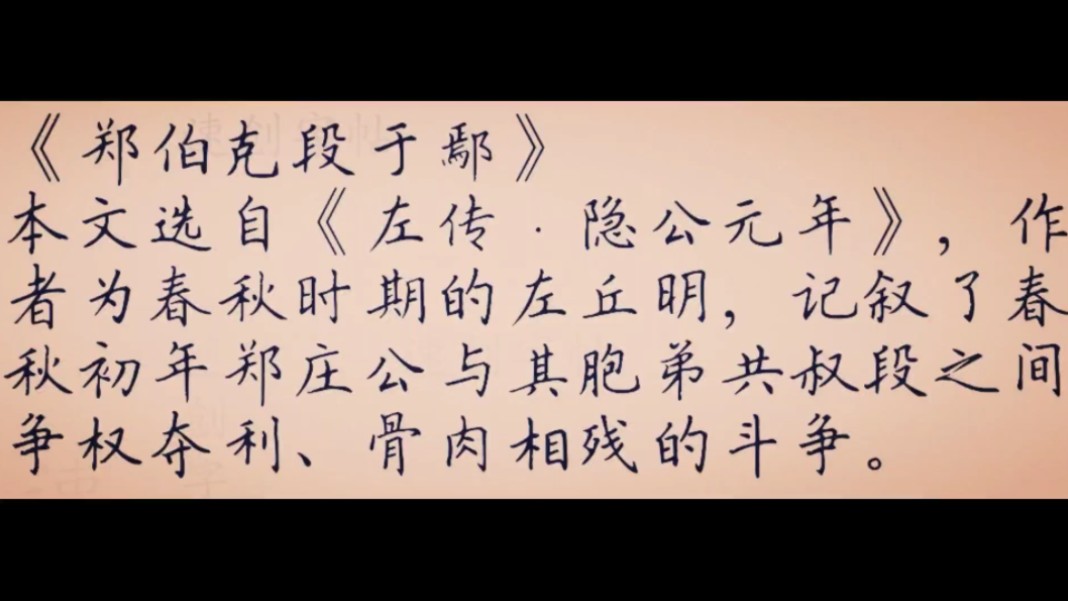 《郑伯克段于鄢》
本文选自《左传·隐公元年》，作
者为春秋时期的左丘明，记叙了春
秋初年郑庄公与其胞弟共叔段之间
争权夺利、骨肉相残的斗争。